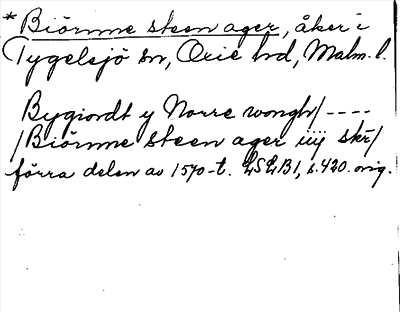 *Biörnne steen ager, åker i
Tygelsjö sn, Oxie hd, Malm. l.
Bygiordt y Norre wongh/ ----
/Biörnne steen ager iiij skr/
förra delen av 1570-t. LSLB1, s. 420. orig.